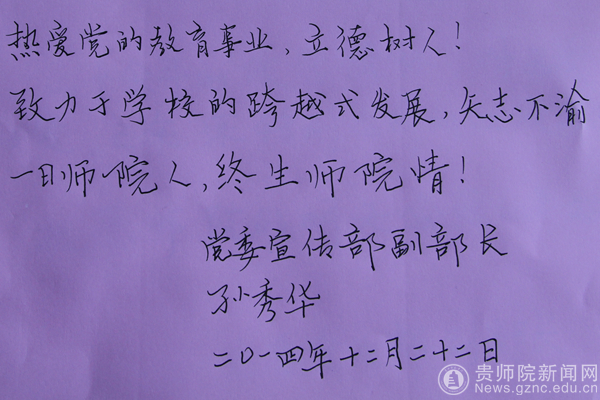 热爱党的教育事业，立德树人！
致力于学校的跨越式发展，矢志不渝
一日师院人，终生师院情！
党委宣传部副部长
孙秀华
二〇一四年十二月二十二日
贵师院新闻网
News.gznc.edu.cn